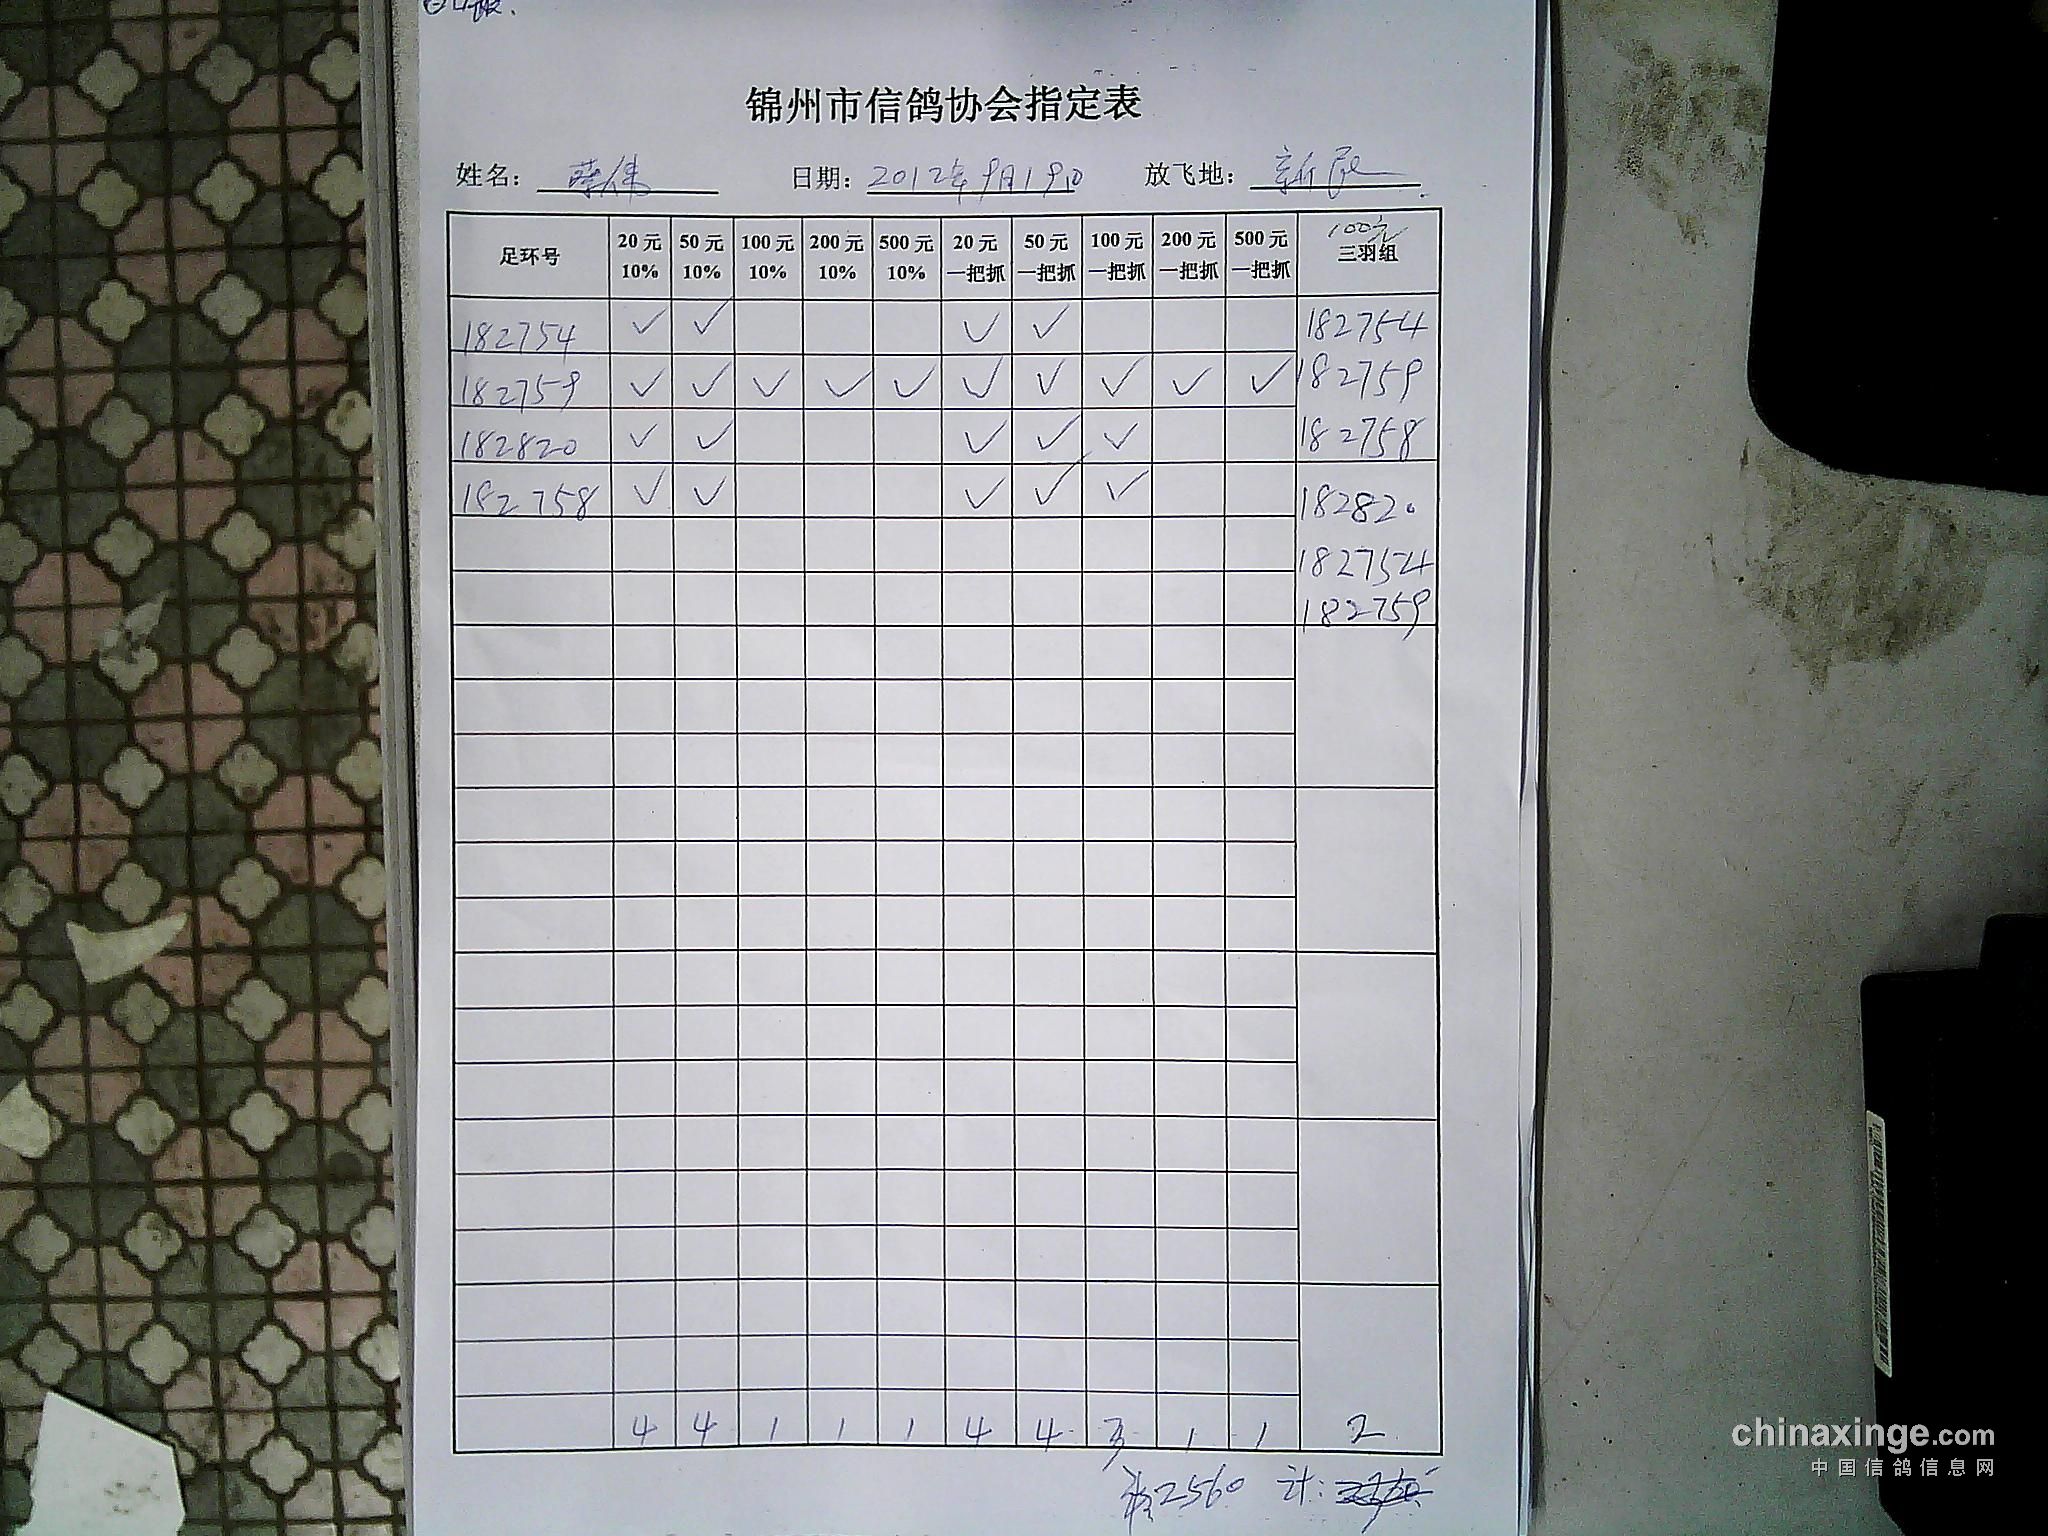 锦州市信鸽协会指定表
姓名： 薛伟 日期：2012年9月19日 放飞地： 新民
足环号 20元 10% 50元 10% 100元 10% 200元 10% 500元 10% 20元 一把抓 50元 一把抓 100元 一把抓 200元 一把抓 500元 一把抓 100元 三羽组
182754 ✓ ✓ ✓ ✓ 182754
182759 ✓ ✓ ✓ ✓ ✓ ✓ ✓ ✓ ✓ ✓ 182759
182820 ✓ ✓ ✓ ✓ ✓ 182758
182758 ✓ ✓ ✓ ✓ ✓ 182820
182754
182759
4 4 1 1 1 4 4 3 1 1 2
2560 计：
chinaxinge.com
中国信鸽信息网